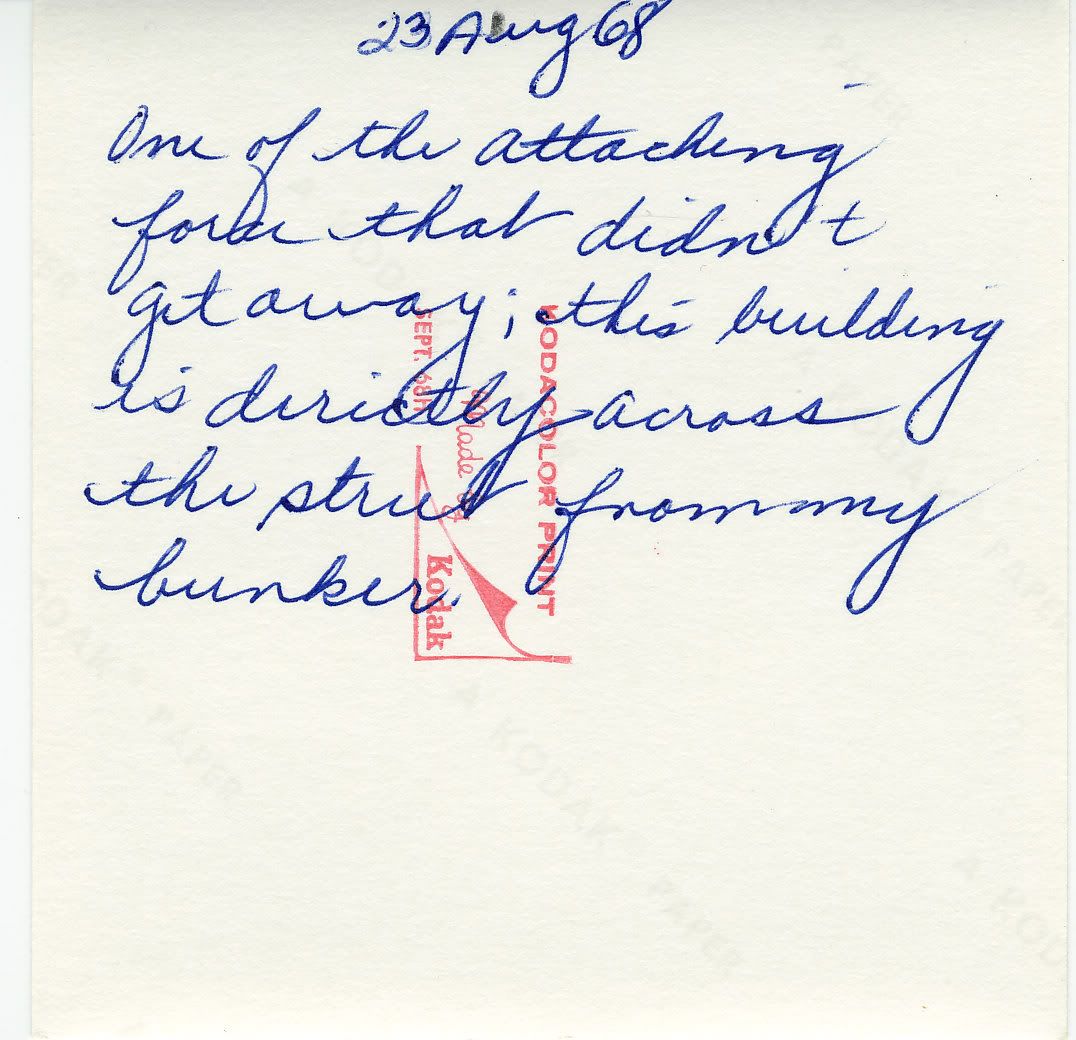 23 Aug 68
One of the attacking
force that didn't
get away; this building
is directly across
the street from my
bunker.
KODACOLOR PRINT
Made by
Kodak
SEPT. 68H
KODAK PAPER
KODAK PAPER